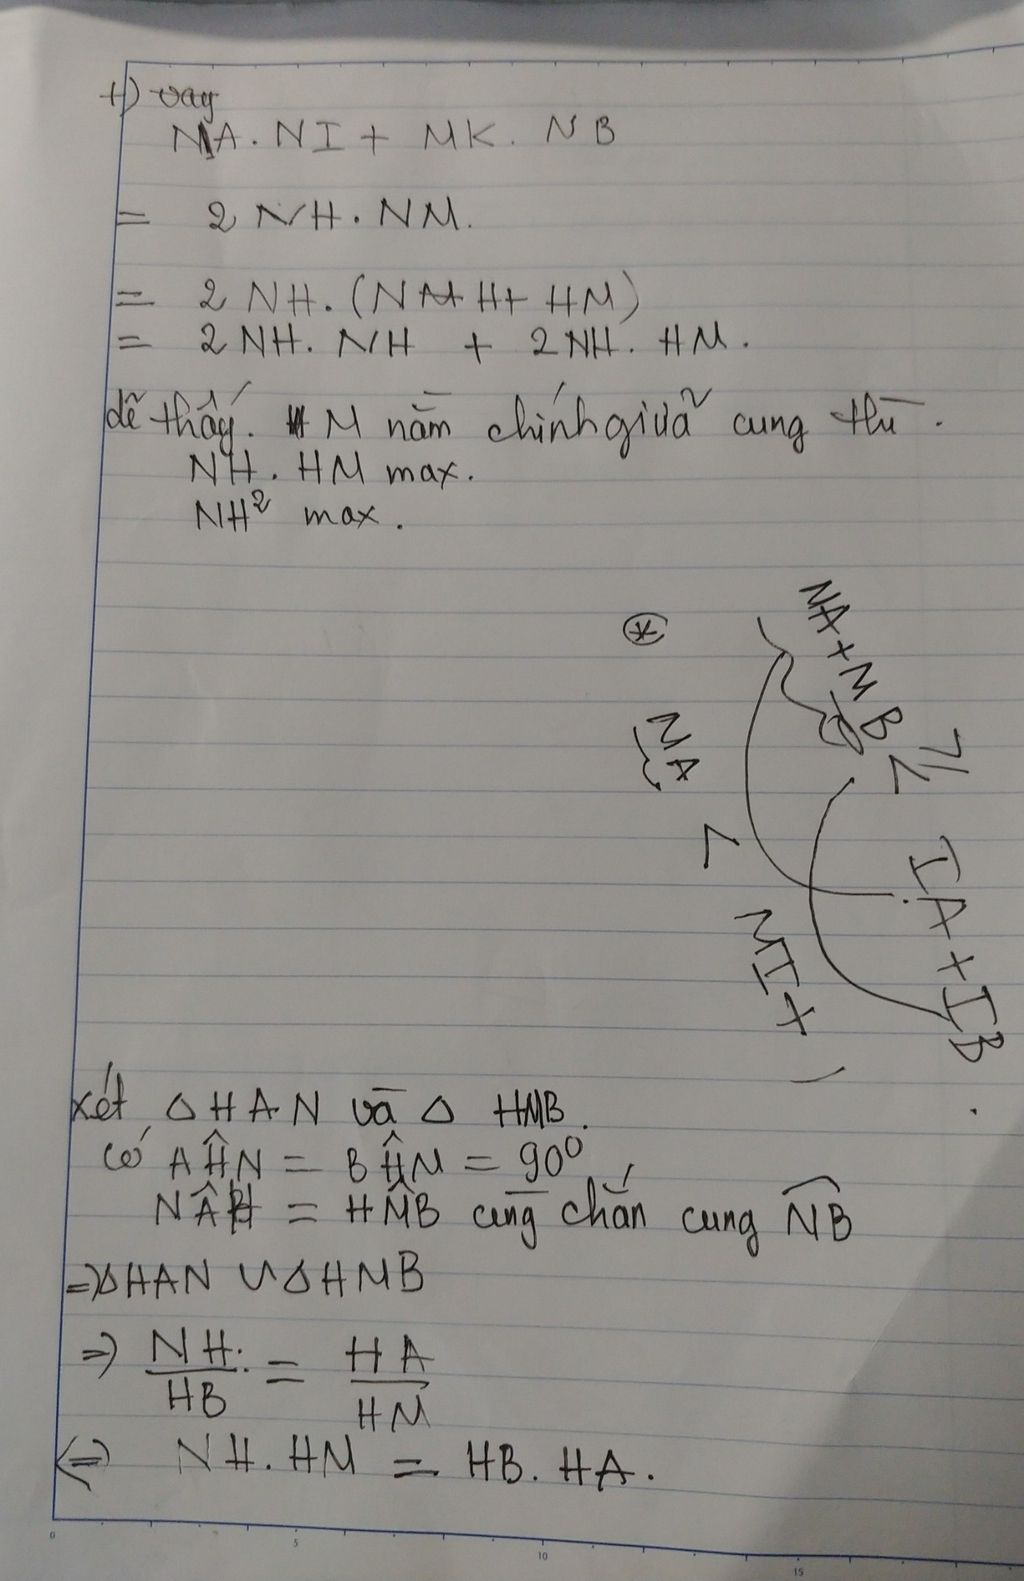 +) vay
NA. NI + MK. NB
= 2 NH. NM.
= 2 NH. (NH + HM)
= 2 NH. NH + 2 NH. HM.
dễ thấy. M nằm chính giữa cung thì.
NH. HM max.
NH² max.
*
NA + MB
IA + IB
MA <
MI +
xét △ HAN và △ HMB.
có AĤN = BĤM = 90⁰
NÂH = HM̂B cùng chắn cung NB
=> △HAN ∽ △HMB
=> NH/HB = HA/HM
<=> NH. HM = HB. HA.
0 5 10 15